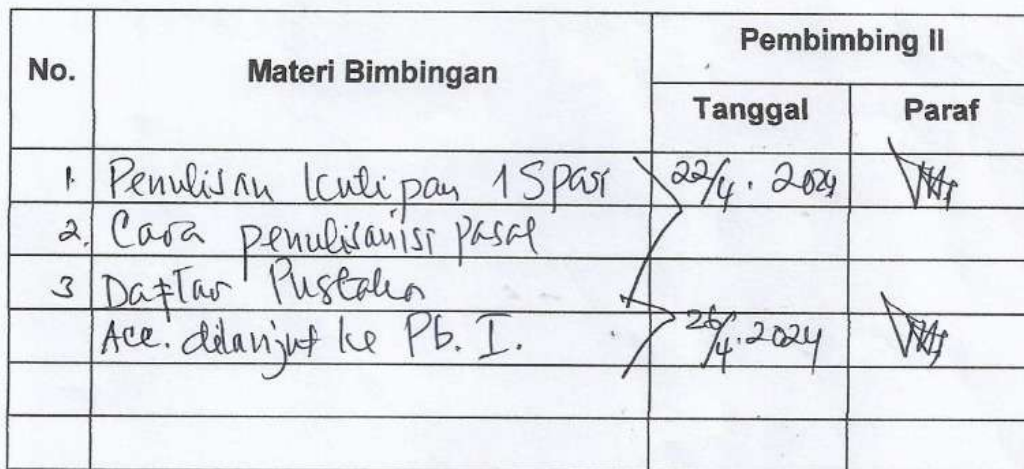 No. Materi Bimbingan Pembimbing II
Tanggal Paraf
1. Penulisan kutipan 1 Spasi 22/4. 2024
2. Cara penulisan isi pasal
3 Daftar Pustaka
Acc. dilanjut ke Pb. I. 26/4. 2024